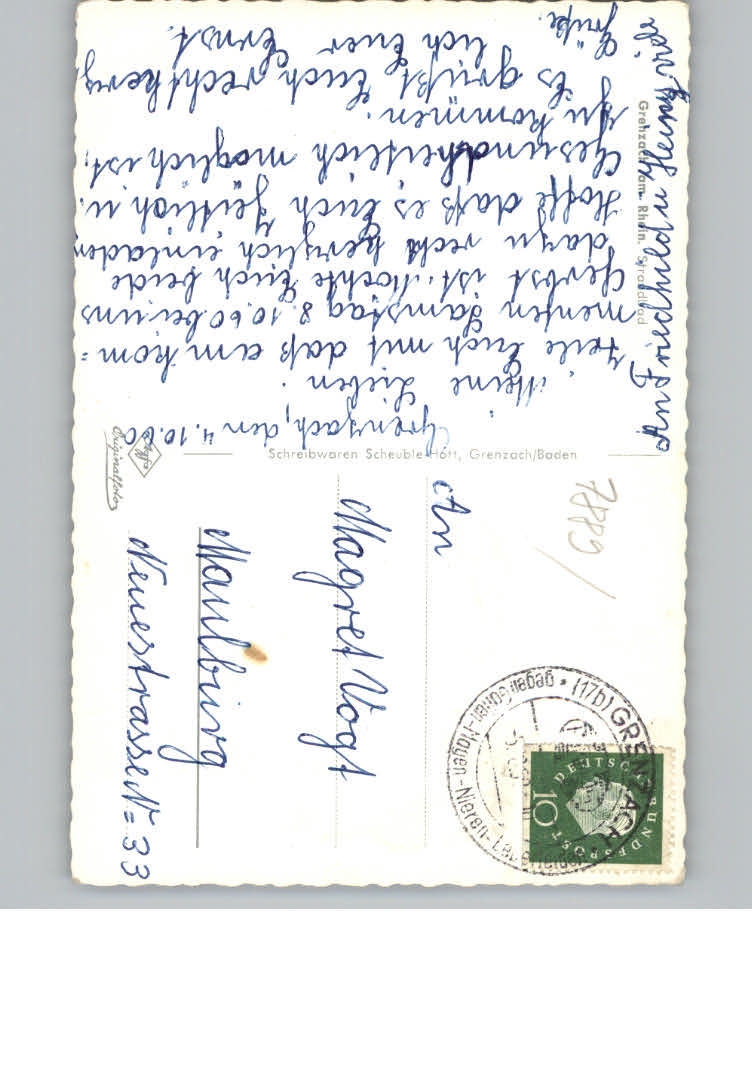 Grenzach, den 4.10.60
Meine Lieben.
Teile Euch mit daß am kom=
menten Samstag 8.10.60 bei uns
Herbst ist. Möchte Euch beide
dazu recht herzlich einladen
Hoffe daß es Euch Zeitlich u.
Gesundheitlich möglich ist,
zu kommen.
Es grüßt Euch recht herz
lich Euer Ernst.
An Friedhild u. Henry viele
Grüße.
Grenzach am Rhein. Strandbad
Schreibwaren Scheuble-Hört, Grenzach/Baden
Agfa
Originalfoto
An
Magret Vogt
Maulburg
Neuestrasse No 33
7889
(17b) GRENZACH
gegen Gallen-Magen-Nieren-u. Leberleiden
DEUTSCHE
BUNDESPOST
10